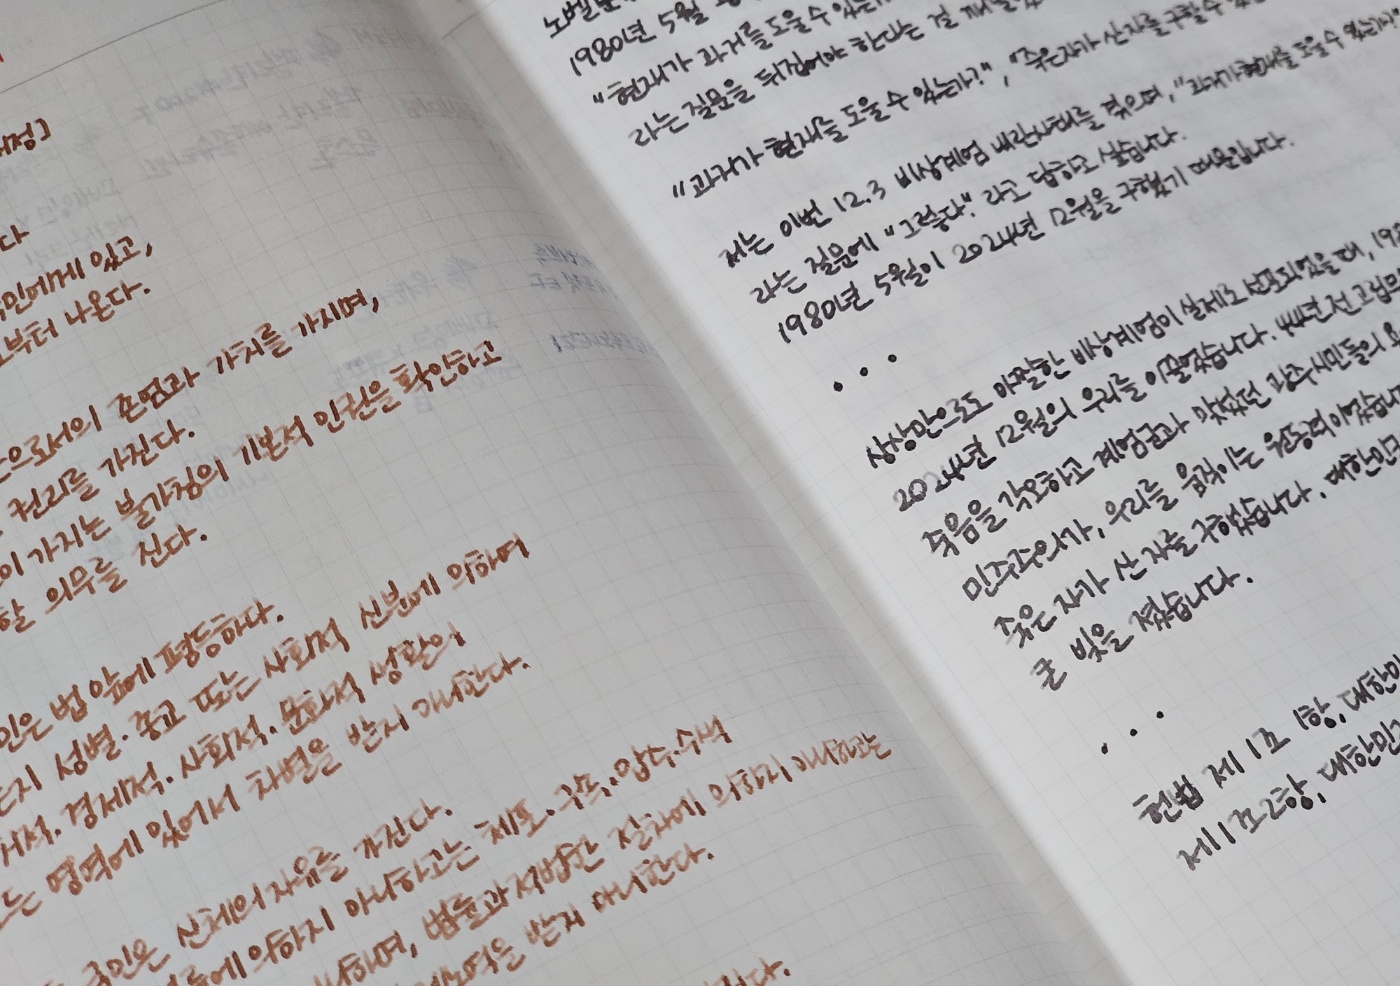 다
있고,
부터 나온다.
으로서의 존엄과 가치를 가지며,
권리를 가진다.
이 가지는 불가침의 기본적 인권을 확인하고
할 의무를 진다.
민은 법 앞에 평등하다.
든지 성별·종교 또는 사회적 신분에 의하여
경제적·사회적·문화적 생활의
영역에 있어서 차별을 받지 아니한다.
국민은 신체의 자유를 가진다.
의하지 아니하고는 체포·구속·압수·수색
법률과 적법한 절차에 의하지 아니하고는
받지 아니한다.
1980년 5월
"현재가 과거를 도울 수 있는가
라는 질문을 뒤집어야 한다는 걸
"과거가 현재를 도울 수 있는가?", "죽은 자가 산 자를 구할 수
저는 이번 12.3 비상계엄 내란사태를 겪으며, "과거가 현재를 도울 수 있는가"
라는 질문에 "그렇다." 라고 답하고 싶습니다.
1980년 5월이 2024년 12월을 구했기 때문입니다.
...
상상만으로도 아찔한 비상계엄이 실제로 선포되었을 때,
2024년 12월의 우리를 이끌었습니다.
죽음을 각오하고 계엄군과 맞섰던 광주시민들의
민주주의가, 우리를 움직이는 원동력이었습니
죽은 자가 산 자를 구했습니다. 대한민
큰 빚을 졌습니다.
...
헌법 제1조 1항, 대한민
제1조 2항, 대한민